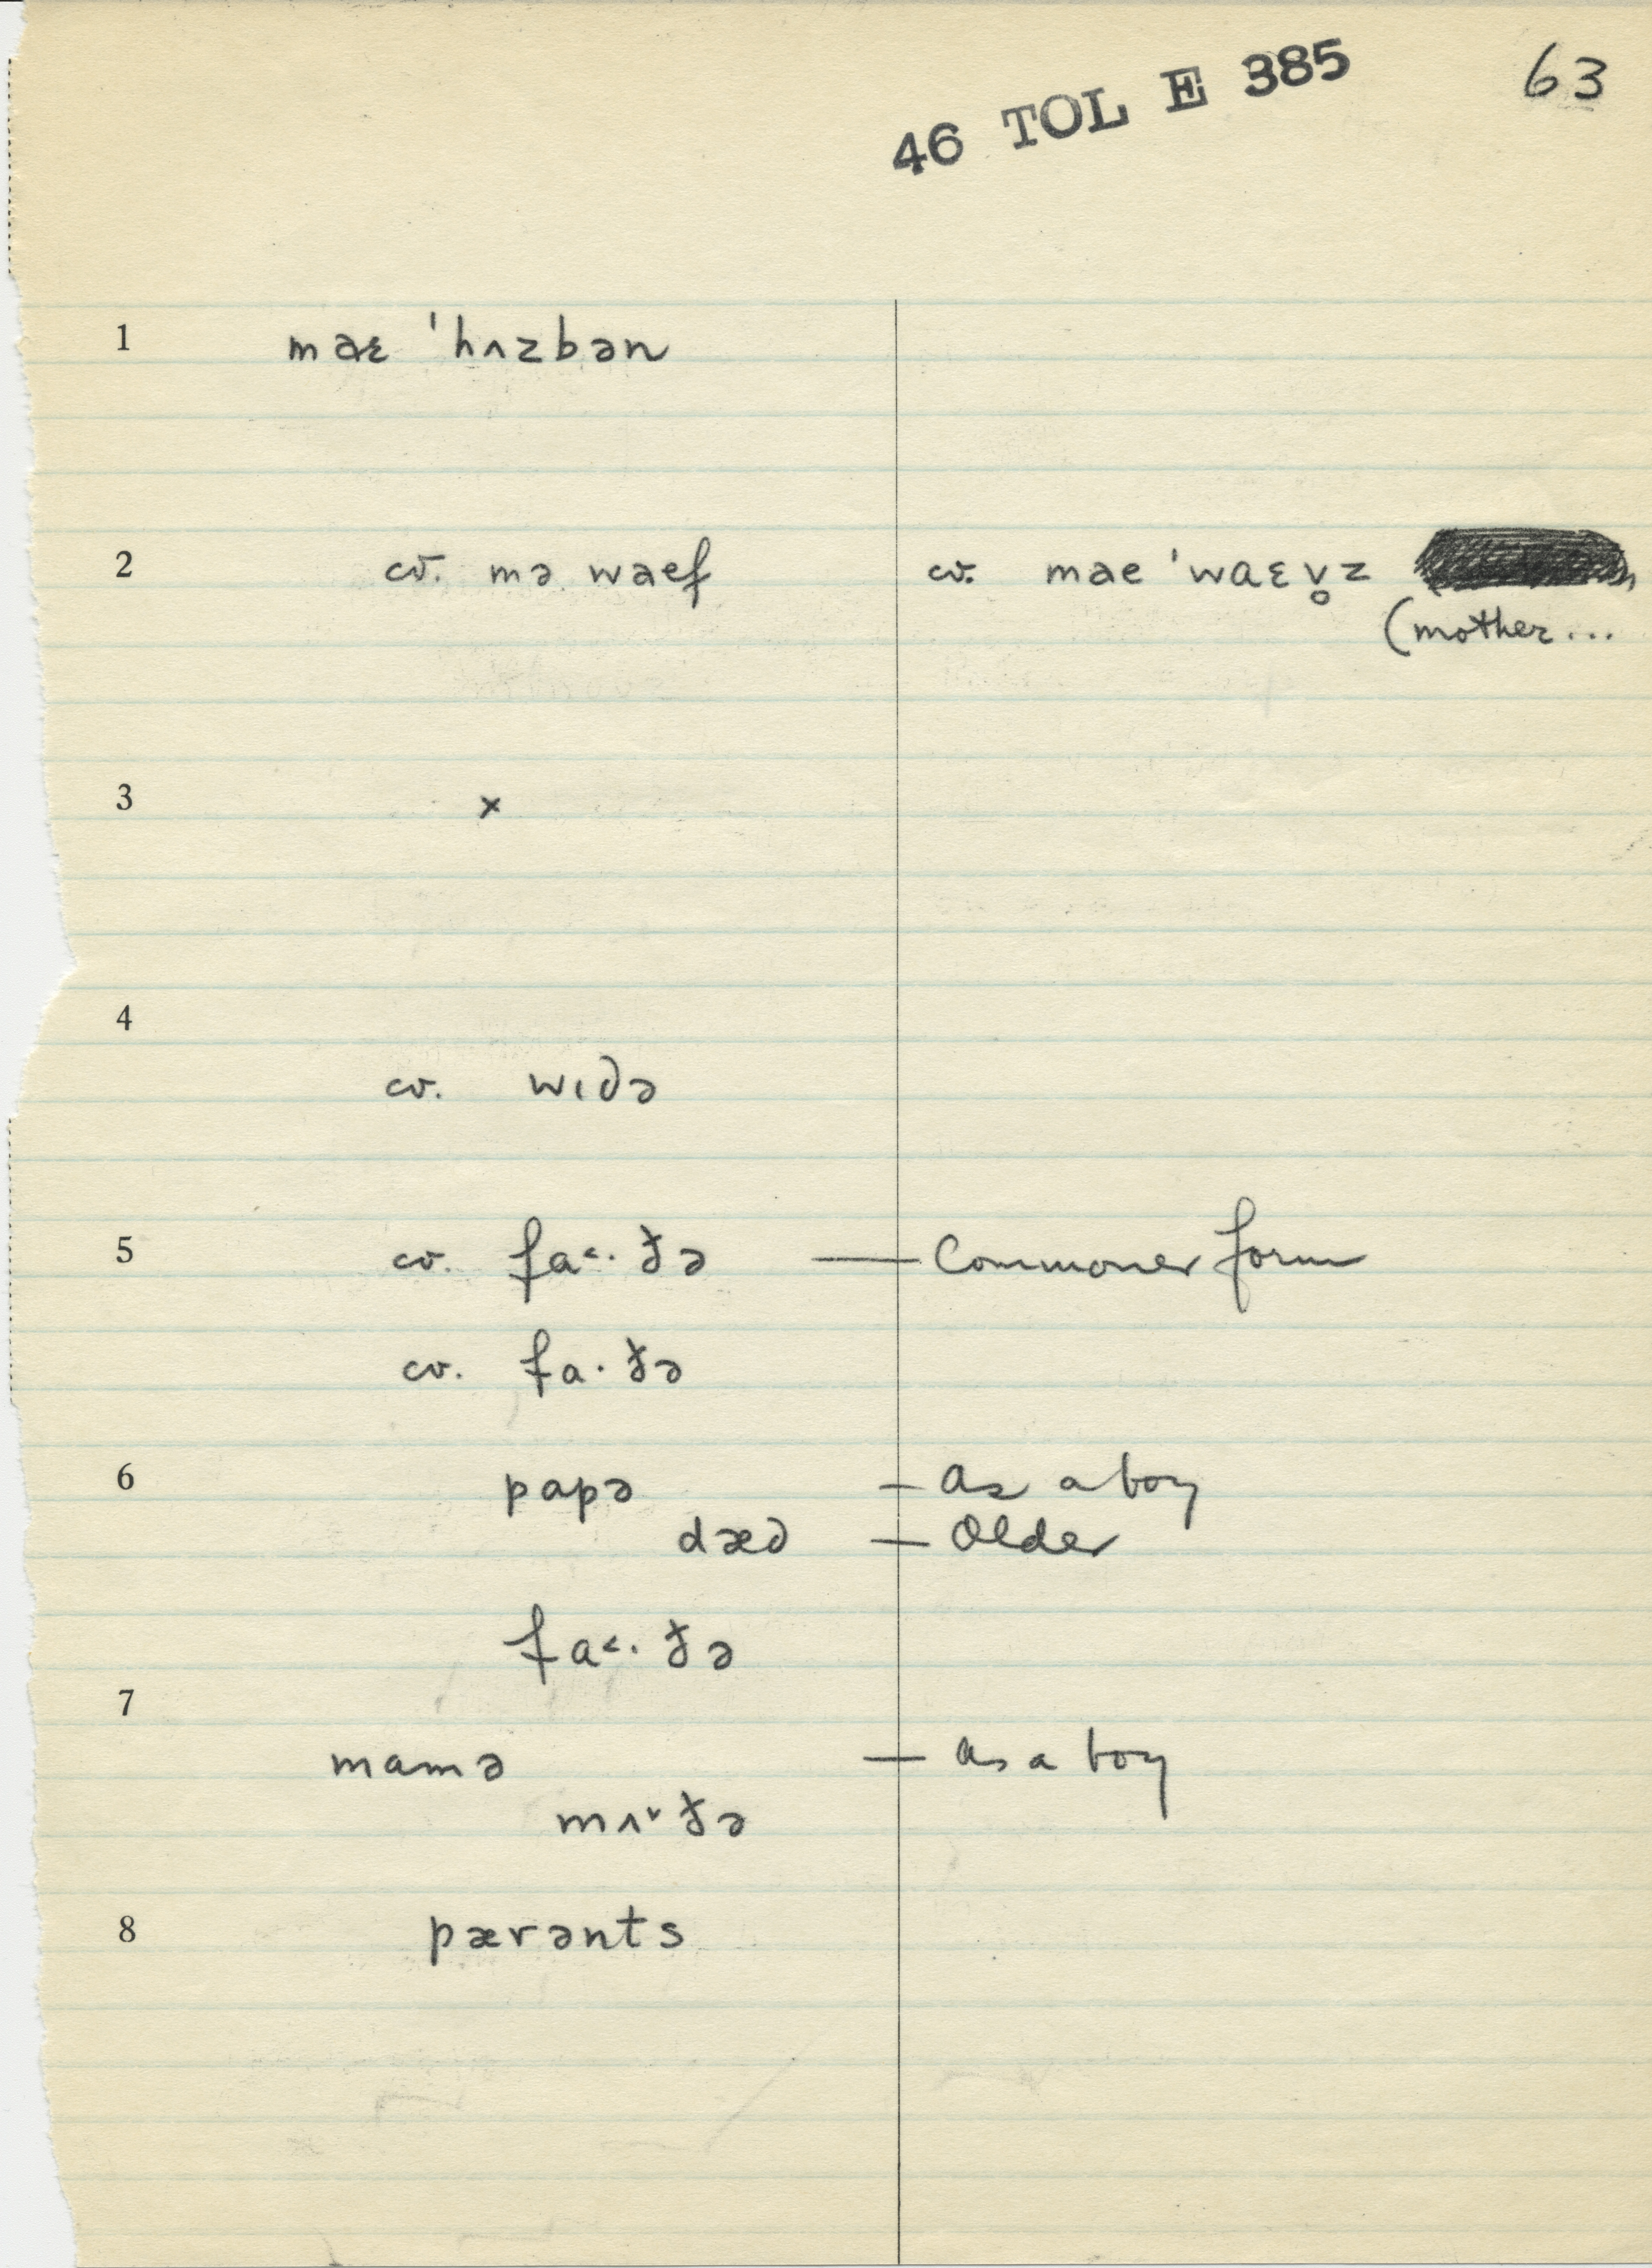 46 TOL E 385 63
1 maɛ ˈhʌzbən
2 cv. mə waef cv. mae ˈwaɛv̥z
(mother...
3 ×
4
cv. wɪdə
5 cv. fa˂·ðə — Commoner form
cv. fa·ðə
6 papə — as a boy
dæd — Older
fa˂·ðə
7
mamə — as a boy
mʌ˅ðə
8 pærənts